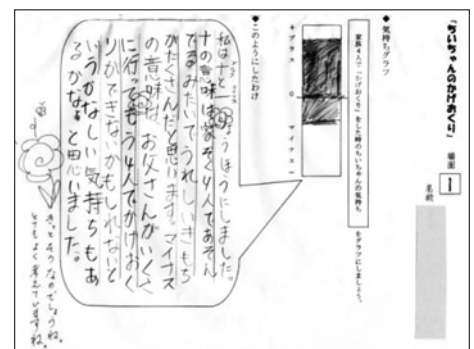 「ちいちゃんのかげおくり」 場面 1
名前
◆気持ちグラフ
家族4人で「かげおくり」をした時のちいちゃんの気持ち をグラフにしましょう。
+プラス 0 マイナス−
◆このようにしたわけ
私は+と−りょうほうにしました。
プラス マイナス
+の意味は家ぞく4人であそん
でるみたいでうれしいきもち
がたくさんだと思います。マイナス
の意味は、お父さんがいくさ
に行ってもう4人でかげおく
りができないかもしれないと
いうかなしい気持ちもあ
るかなぁと思いました。
きっとそうなのでしょうね。
とてもよく考えていますね。